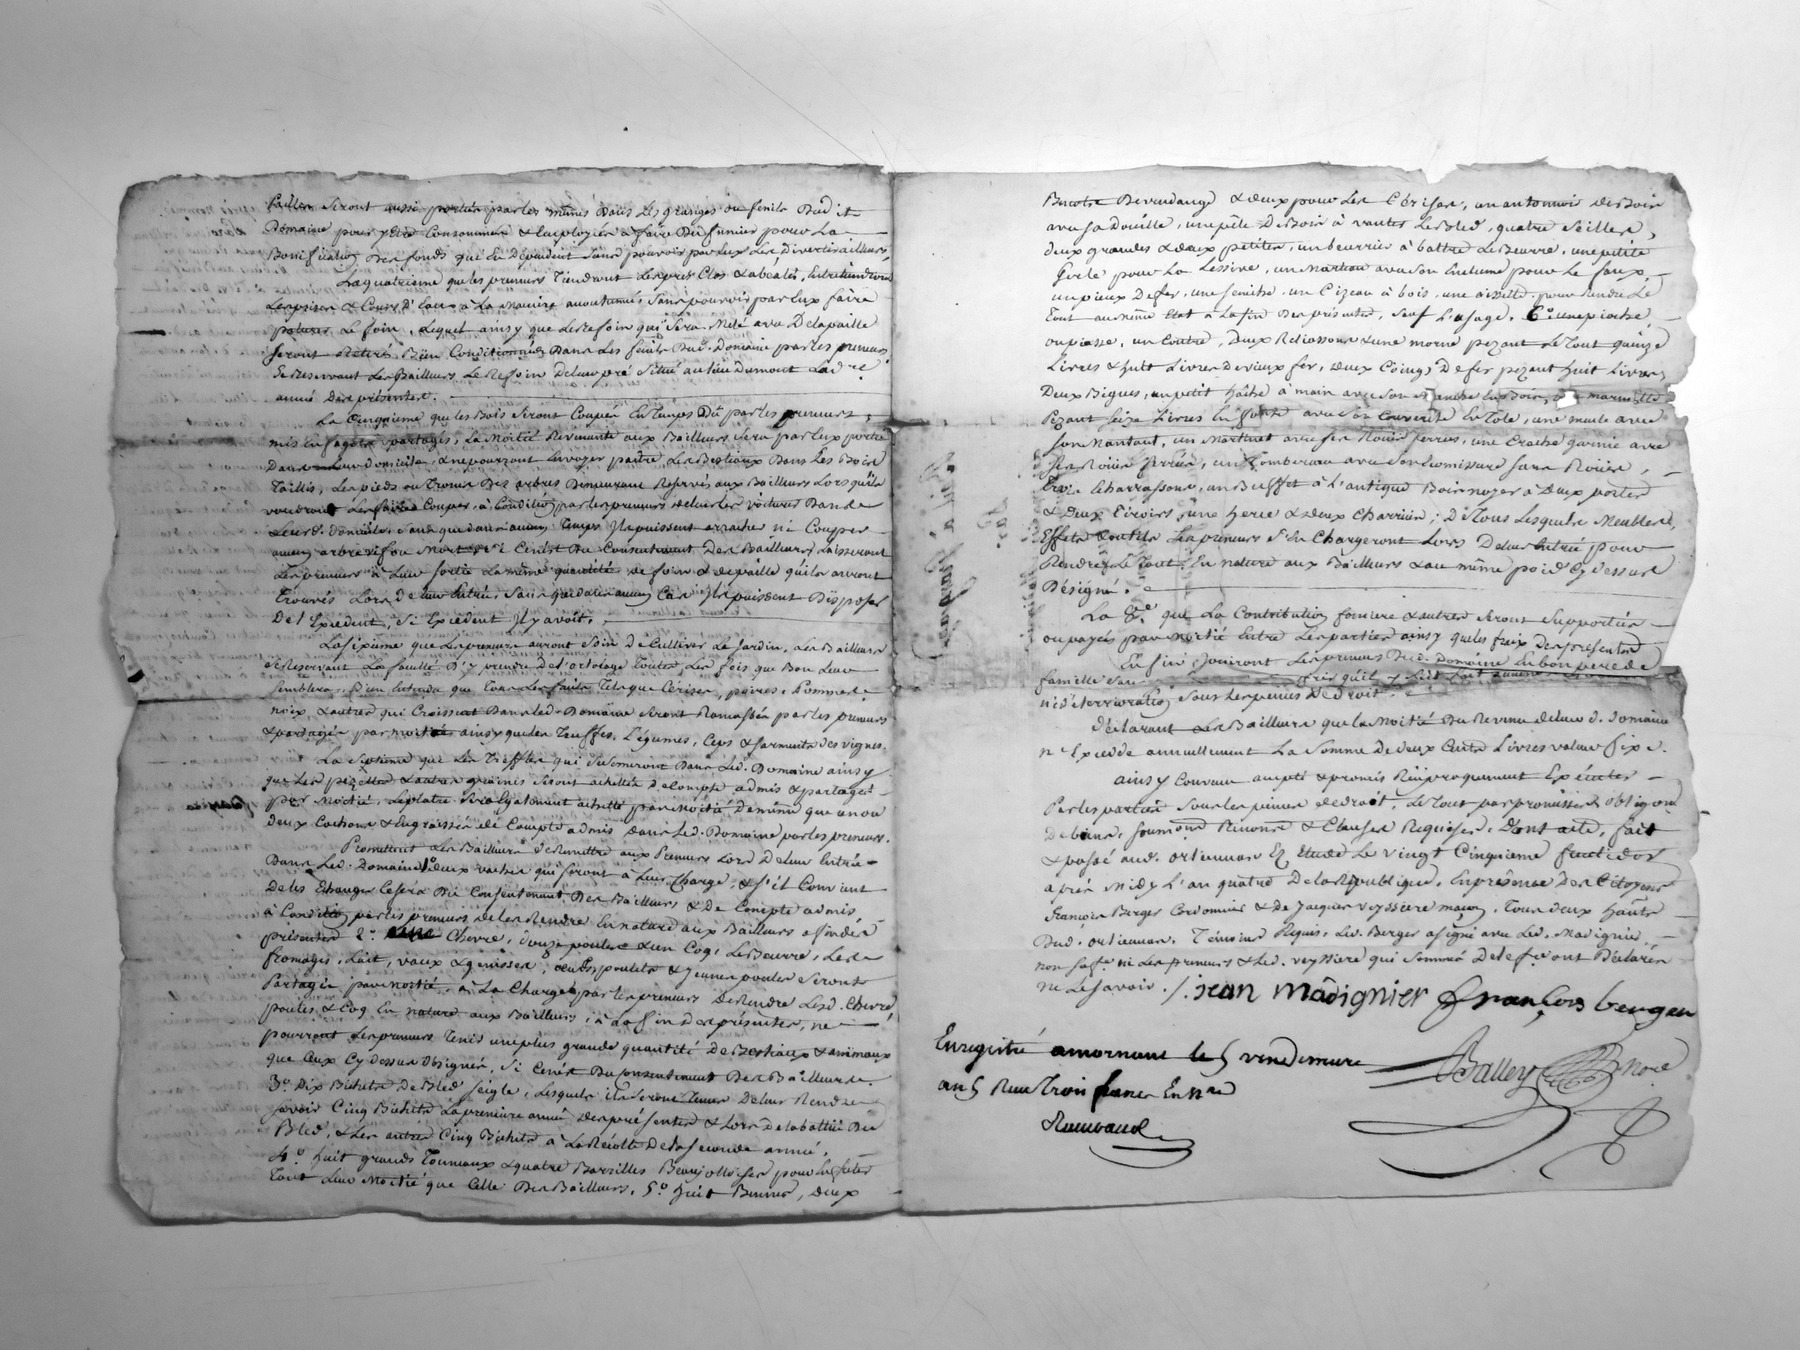 Pailles Seront aussi portées par les mêmes Dans Les granges ou fenils Dudit
Domaine pour y Etre Consommées & Employées à faire Du fumier pour La
Bonification Des fonds qui En Dépendent Sans pouvoir par Eux Les Divertir ailleurs,
La quatrieme que les preneurs Tiendront Les prés Clos & abcalés, Entretiendront
Les prises & Cours D'Eaux à La Maniere accoutumée Sans pouvoir par Eux faire
paturer Le foin, Lequel ainsy que Le Refoin qui Sera Melé avec De la paille
Seront Retirés Bien Conditionnés Dans Les fenils Dud. Domaine par les preneurs
Se reservant Les Bailleurs Le Refoin De leur pré Situé au lieu Dumont La dre
année Des présentes.
La Cinquieme que les Bois Seront Coupés En Temps Dû par les preneurs,
mis En fagots partagés, La Moitié Revenante aux Bailleurs Sera par Eux portée
Dans Leur Domicile, & ne pourront Envoyer paitre Les Bestiaux Dans Les Bois
Taillis, Les pieds ou Troncs Des arbres Demeurant Reservés aux Bailleurs Lorsqu'ils
voudront Les faire Couper, à Condition par les preneurs De leur Les voiturer Dans
Leurd. Domicile, Sans que Dans aucun Temps Ils puissent arracher ni Couper
aucun arbre vif ou Mort Si Ce n'est Du Consentement Des Bailleurs, Laisseront
Les preneurs à Leur Sortie La même quantité de foin & de paille qu'ils auront
Trouvés Lors De leur Entrée, Sans que Dans aucun Cas Ils puissent Disposer
De l'Excedent, Si Excedent Il y avoit.
La Sixieme que Les preneurs auront Soin De Cultiver Le Jardin, Les Bailleurs
Se Reservant La faculté D'y prendre De l'ortolage Toutes Les fois que Bon Leur
Semblera, Bien Entendu que Tous Les fruits Tels que Cerises, poires & Pommes
noix & autres qui Croissent Dans Led. Domaine Seront Ramassés par les preneurs
& partagés par moitié ainsy que les Truffes, Légumes, Ceps & Sarments des vignes.
La Septieme que Les Treffles qui Se Semeront Dans Led. Domaine ainsy
que Les pezettes & autres graines Seront achettées De Compte admis & partagés
par Moitié, Le platre Sera Egalement achetté par moitié De même que un ou
Deux Cochons & Engraissés de Compte admis Dans Led. Domaine par les preneurs.
Promettent Les Bailleurs De Remettre aux Preneurs Lors De leur Entrée
Dans Led. Domaine 1.º Deux vaches qui Seront à Leur Charge, & S'il Convient
De les Echanger Ce Sera Du Consentement Des Bailleurs & De Compte admis,
à Condition par les preneurs de les Rendre En nature aux Bailleurs a fin des
présentes 2.º une Chevre, Douze poules & un Coq, Le Beurre, Les
fromages, Lait, veaux & genisses, œufs, poulets & Jeunes poules Seront
Partagés par moitié, à La Charge par les preneurs De Rendre Lesd. Chevre,
poules & Coq En nature aux Bailleurs, à La fin Des présentes, ne
pourront Les preneurs Tenir une plus grande quantité De Bestiaux & animaux
que Ceux Cy Dessus Désignés, Si Ce n'est Du Consentement Des Bailleurs.
3.º Dix Bichets De Bled Seigle, Lesquels ils Seront Tenus De leur Rendre
Savoir Cinq Bichets La premiere année Des présentes & Lors De la battue Des
Bled, & Les autres Cinq Bichets à La Récolte De la Seconde année,
4.º huit grands Tonneaux & quatre Barrilles Beaujolloises pour En futer
Tant Leur Moitié que Celle Des Bailleurs, 5.º huit Bennes, Deux
Bennots De vendange & Deux pour Les Cérises, un antonnoir De Bois
avec Sa Douille, une pelle De Bois à vanter Le Bled, quatre Seilles,
deux grandes & deux petites, un beurrier à battre Le Beurre, une petite
Gerle pour La Lessive, un Marteau avec Son Enclume pour Le faux,
un pieux De fer, une Serithe, un Cizeau à bois, une aisselle pour Rendre Le
Tout au même Etat à La fin Des présentes, Sauf L'usage, 6.º une pioche
ou piasse, un Coutre, Deux Reliassons & une morne pezant Le Tout quinze
Livres & huit Livres De vieux fer, Deux Coings De fer pezant huit Livres,
Deux Bigues, un petit hache à main avec Son Manche En Bois, une marmitte
Pezant Seize Livres En fonte avec Son Couvercle En Tole, une meule avec
Son Mantaut, un Martinet avec Ses Roues ferrées, une Crache garnie avec
Ses Roues ferrées, un Tombereau avec Son Écomissure Sans Roues,
Trois Eschärassons, un Buffet à l'antique Bois noyer à Deux portes
& Deux Tiroirs, une herse & Deux Charrues; De Tous Lesquels Meubles,
Effets & outils Les preneurs S'en Chargeront Lors De leur Entrée pour
Rendre Le Tout En nature aux Bailleurs & au même poid Cy Dessus
Désigné.
La 8.e que La Contribution fonciere & autres Seront Supportées
ou payées par moitié Entre Les parties ainsy que les frais Des présentes
En fin Jouiront Les preneurs Dud. Domaine En bon pere de
famille Sans qu'il y Soit fait aucune
ni déterrioration Sous Les peines De Droit.
Déclarant Les Bailleurs que la Moitié Du Revenu De leur d. Domaine
n'Excedde annuellement La Somme De deux Cents Livres valeur fixe.
ainsy Convenu accepté & promis Réciproquement Exécuter
Par les parties Sous Les peines de droit, Le Tout par promesses, Obligaon
De biens, Soumions Renons & Clauses Requises, Dont acte, fait
& passé aud. Orlienas En Etude Le vingt Cinquieme fructidor
après Midy L'an quatre De la République, En présence Des Citoyens
François Berger Cordonnier & De Jacques Veyssiere maçon, Tous deux habts
Dud. Orlienas, Témoins Requis, Led. Berger a signé avec Led. Madignier
non Lad.e ni Les preneurs & Led. Veyssiere qui Sommés De le fre ont Déclarés
ne Le Savoir./. jean madignier françois berger
Balley Nore
Enregistré a mornant le 5 vendemiere
an 5 Reçu Trois francs En nre